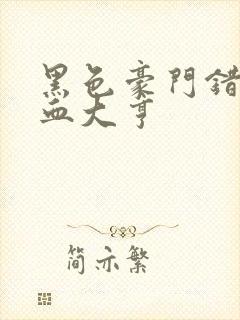 黑色豪門錯
血大亨
简亦繁